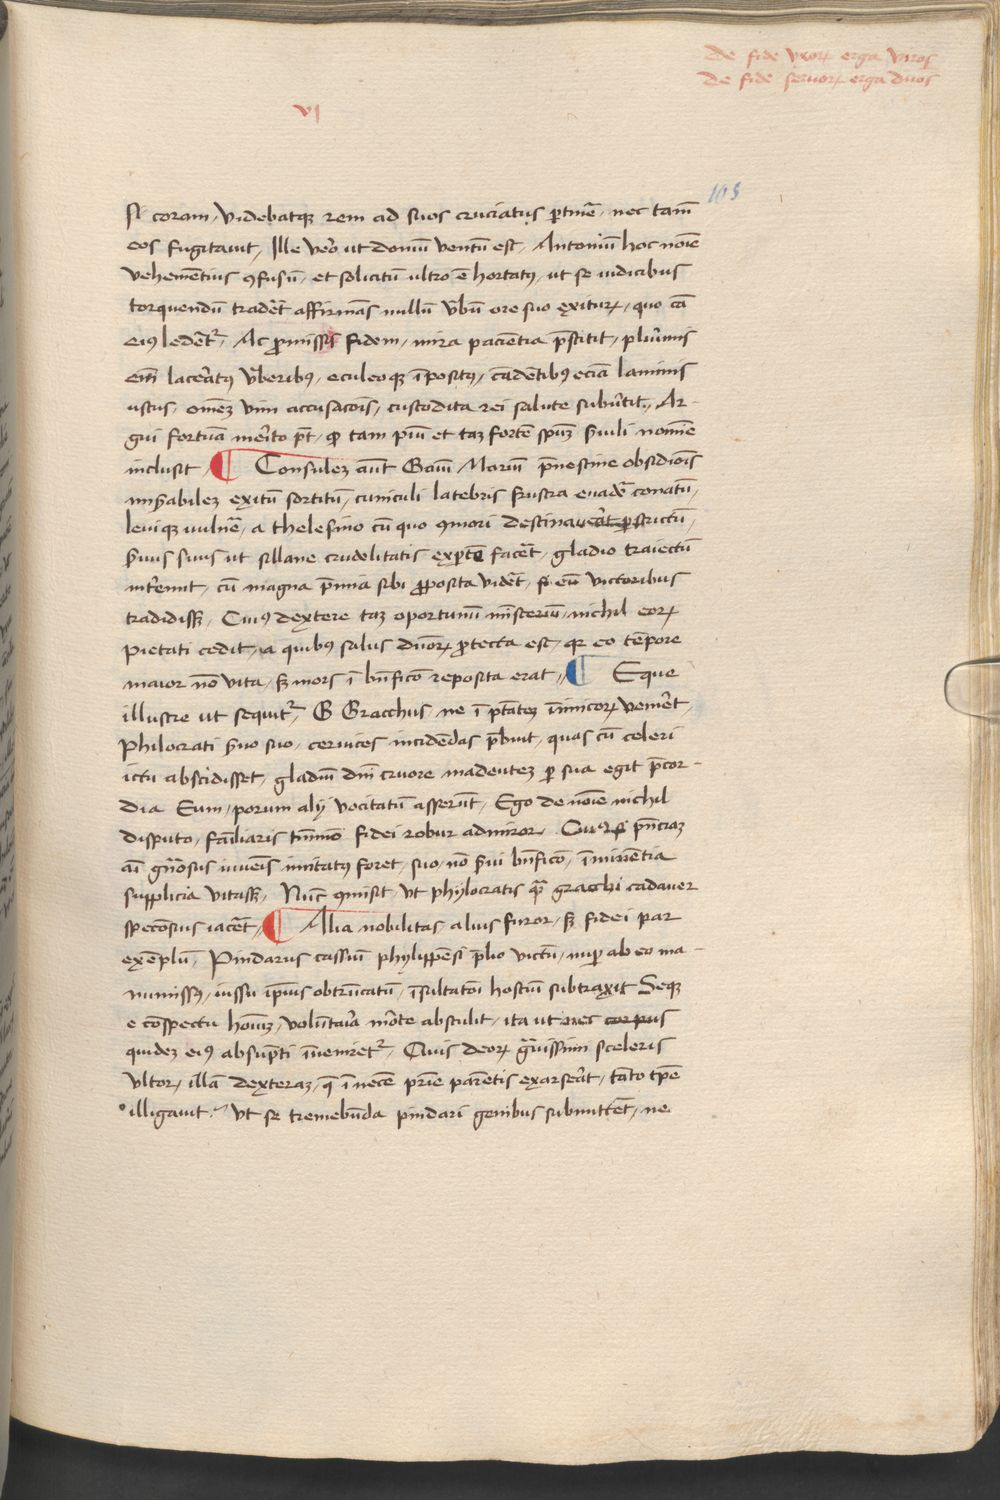 De fide vxorꝝ erga viros
De fide seruorꝝ erga dn̄os
VI
105
si coram, videbatqꝫ rem ad suos cruciatus ꝑtinē͛, nec tam̄
eos fugitauit, Ille vero ut domū ventū est, Antoniū hoc noīe
vehemētius ꝯfusū, et solicitū ultro ē hortatꝯ, ut se iudicibus
torquendū tradēt affirmās nullū v͛bū ore suo exiturꝫ, quo cā
eiꝯ ledēt᷑, Ac ꝓmissis fidem, mira pacientia p̄stitit, plurimis
em̄ lacer͛atꝯ v͛beribꝯ, eculeoqꝫ īpositꝯ, cādētibꝯ eciā laminis
ustus, omēꝫ vim accusacōis, custodita rei salute subu͛tit, Ar-
gui fortūa merito pt̄, ꝙ tam piū et taꝫ fortē spūꝫ s͛uili nomīe
inclusit, ¶ Consuleꝫ aūt Gaiū Mariū p̄nestine obsidiōis
mis͛abileꝫ exitū sortitū, cuniculi latebris frustra euad͛e conatū,
leuiqꝫ uuln͛e, a thelesino cū quo ꝯmori destinauerat ꝑstrictū,
s͛uus suus ut sillane crudelitatis exꝑtē facēt, gladio traiectū
int͛emit, cū magna p̄mia sibi ꝓposita vidēt, si eū victoribus
tradidissꝫ, Cuiꝯ dextere taꝫ oportunū mīsteriū, nichil eorꝫ
pietati cedit, a quibꝯ salus dn̄orꝫ ꝓtecta est, qꝛ eo tēpore
maior nō vita, sꝫ mors ī bn̄ficō reposita erat, ¶ Eque
illustre ut sequit᷑, G Gracchus, ne ī pt̄ateꝫ inimicorꝫ venir͛et,
Philocrati s͛uo suo, ceruices incidēdas p̄buit, quas cū celeri
ictu abscidisset, gladiū dn̄i cruore madenteꝫ ꝑ sua egit p̄cor-
dia Eum, porum alij vocitatū asserūt, Ego de noīe nichil
disputo, famīliaris tm̄mō fidei robur admiror, Cuiꝯ si p̄nciaꝫ
aī gn͛osus iuuenis imitatꝯ foret, suo, nō s͛ui bn̄ficō, īminentia
supplicia vitassꝫ, Nūc ꝯmisit, vt phylocratis qꝫ gracchi cadauer
speciosius iacēt, ¶ Alia nobilitas alius furor, sꝫ fidei par
exēplū, Pindarus cassiū phylippēsi p̄lio victū, nuꝑ ab eo ma-
numissꝯ, iussu ip̄ius obtrūcatū, īsultatoī hostiū subtraxit Seqꝫ
e cōspectu hoīuꝫ, volūtar͛ia morte abstulit, ita ut nec corpus
quideꝫ eiꝯ absupti īueniret᷑, Quis deorꝫ gr͛auissimi sceleris
vltor, illā dexteraꝫ, q̄ ī necē pr͛ie parētis exarserāt, tāto tp̄e
illigauit, vt se tremebūda pindari genibus submittēt, ne